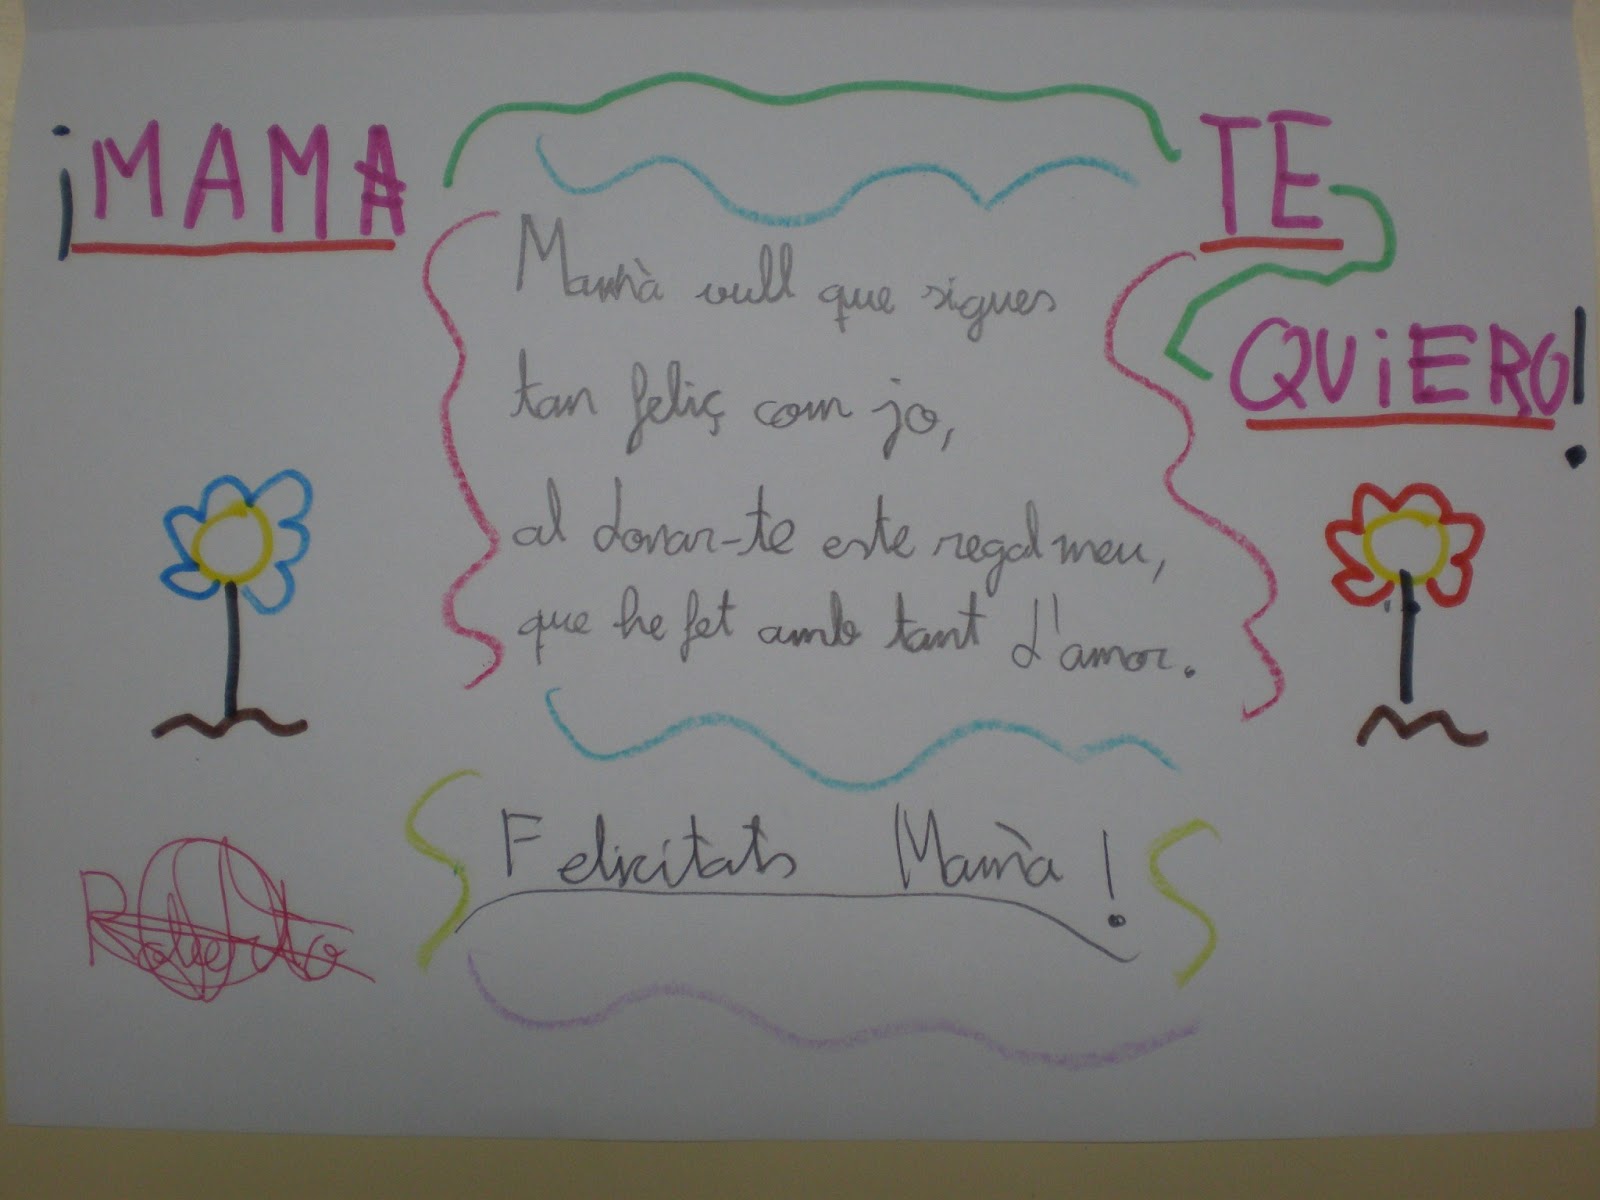 ¡MAMA TE
QUiERO!
Mamà vull que sigues
tan feliç com jo,
al donar-te este regal meu,
que he fet amb tant d'amor.
Felicitats Mamà!
Roberto